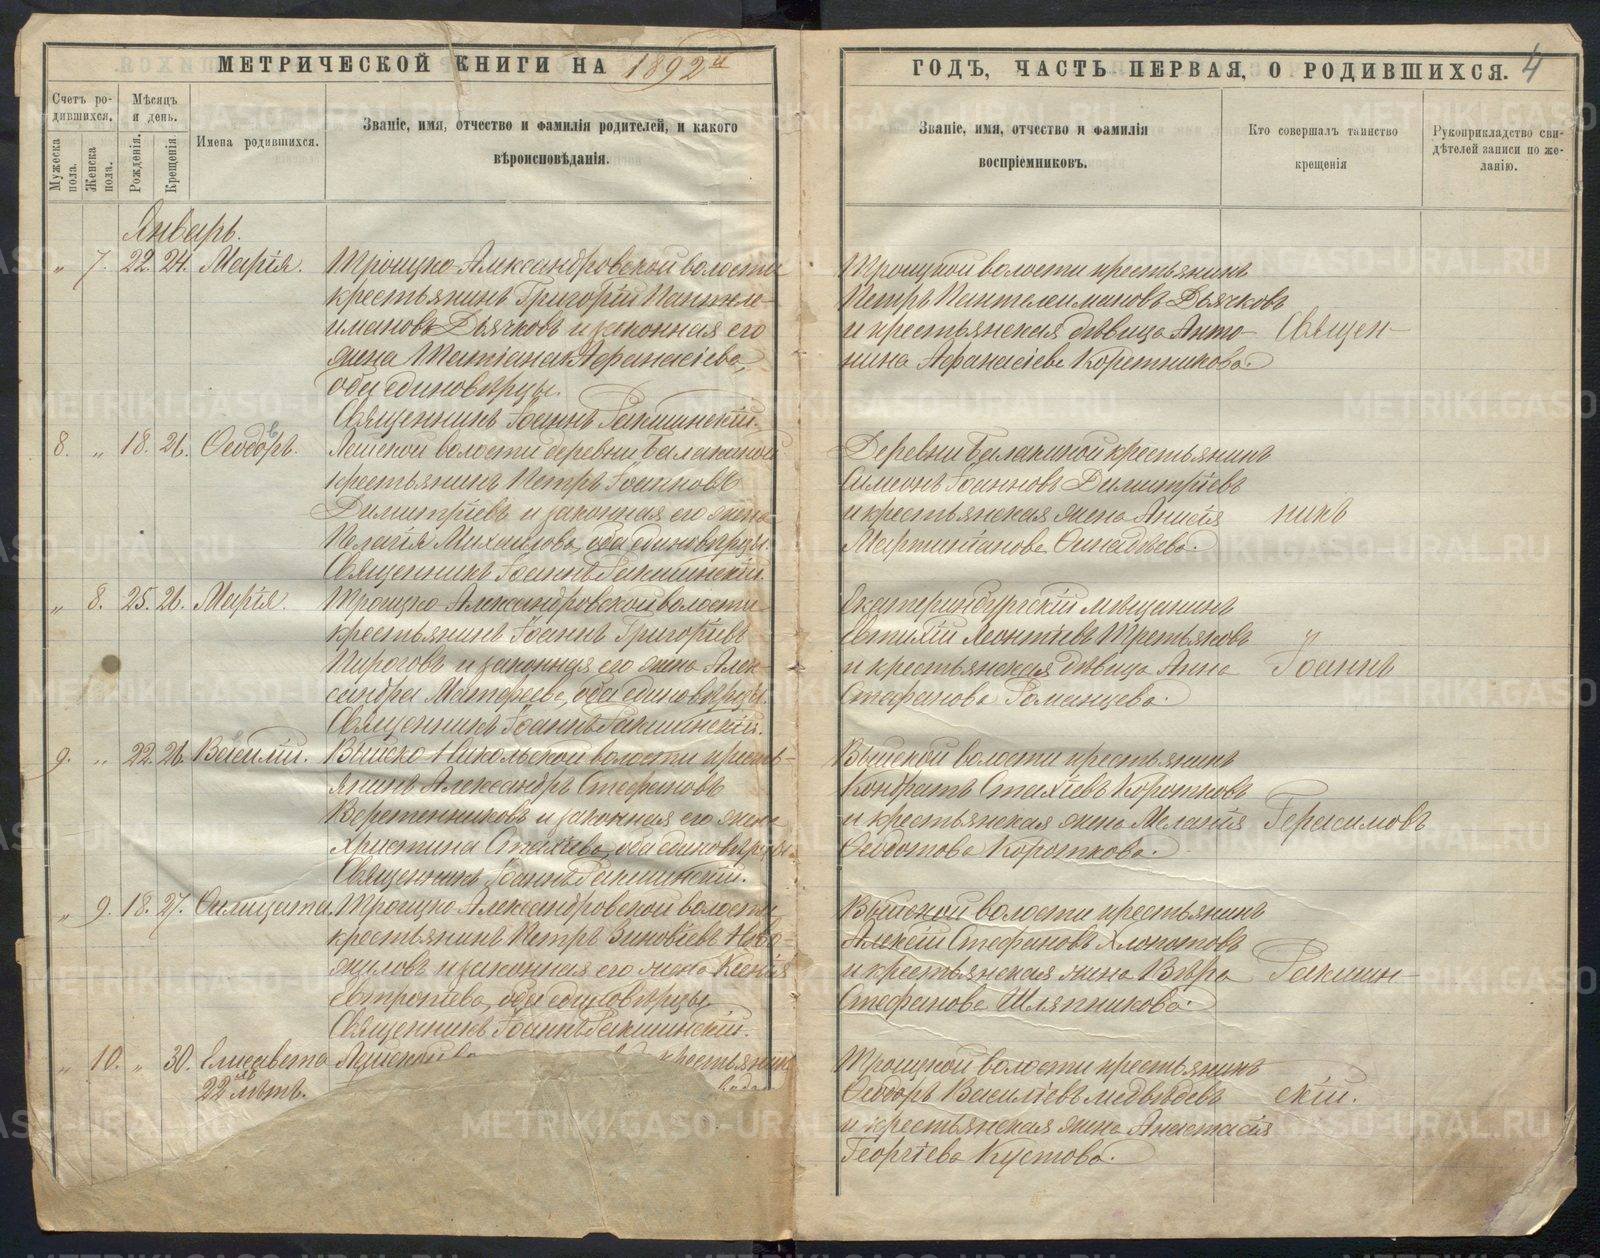 МЕТРИЧЕСКОЙ КНИГИ НА 1892й
Счетъ родившихся.
Мѣсяцъ и день.
Имена родившихся.
Званіе, имя, отчество и фамилія родителей, и какого
вѣроисповѣданія.
Мужеска пола.
Женска пола.
Рожденія.
Крещенія
Январь.
„ 7. 22. 24. Марія.
Троицко Александровской волости
крестьянинъ Григорій Пантеле-
имоновъ Дьячковъ и законная его
жена Татіана Афанасіева,
оба единовѣрцы.
Священникъ Іоаннъ
8. „ 18. 26. Ѳеодоръ.
Лайской волости деревни Балакиной
крестьянинъ Петръ Іоанновъ
Димитріевъ и законная его жена
Пелагія Михаилова, оба единовѣрцы.
Священникъ Іоаннъ
„ 8. 25. 26. Марія.
Троицко Александровской волости
крестьянинъ Іоаннъ Григоріевъ
Пироговъ и законная его жена Алек-
сандра Матфеева, оба единовѣрцы.
Священникъ Іоаннъ
9. „ 22. 26. Василій.
Выйско Никольской волости кресть-
янинъ Александръ Стефановъ
Веретенниковъ и законная его жена
Христина Стахіева, оба единовѣрцы.
Священникъ Іоаннъ
„ 9. 18. 27.
Троицко Александровской волости
крестьянинъ Петръ Зиновіевъ Ново-
жиловъ и законная его жена Ксенія
Евтропіева, оба единовѣрцы
Священникъ Іоаннъ
„ 10. „ 30. Елисавета
22 лѣтъ.
Лайской
крестьянинъ
ГОДЪ, ЧАСТЬ ПЕРВАЯ, О РОДИВШИХСЯ. 4
Званіе, имя, отчество и фамилія
воспріемниковъ.
Кто совершалъ таинство
крещенія
Рукоприкладство сви-
дѣтелей записи по же-
ланію.
Троицкой волости крестьянинъ
Петръ Пантелеимоновъ Дьячковъ
и крестьянская дѣвица Анто-
нина Афанасіева Коретникова.
Священ-
Деревни Балакиной крестьянинъ
Симеонъ Іоанновъ Димитріевъ
и крестьянская жена Анисія
Мартиніанова
никъ
Екатеринбургскій мѣщанинъ
Евтихій Леонтіевъ Третьяковъ
и крестьянская дѣвица Анна
Стефанова Романцева.
Іоаннъ
Выйской волости крестьянинъ
Кондратъ Стахіевъ Коротковъ
и крестьянская жена Меланія
Ѳедотова Короткова.
Герасимовъ
Выйской волости крестьянинъ
Алексій Стефановъ Хлопотовъ
и крестьянская жена Вѣра
Стефанова Шляпникова.
Троицкой волости крестьянинъ
Ѳеодоръ Василіевъ Медвѣдевъ
и крестьянская жена Анастасія
Георгіева Кустова.
скій.
METRIKI.GASO-URAL.RU